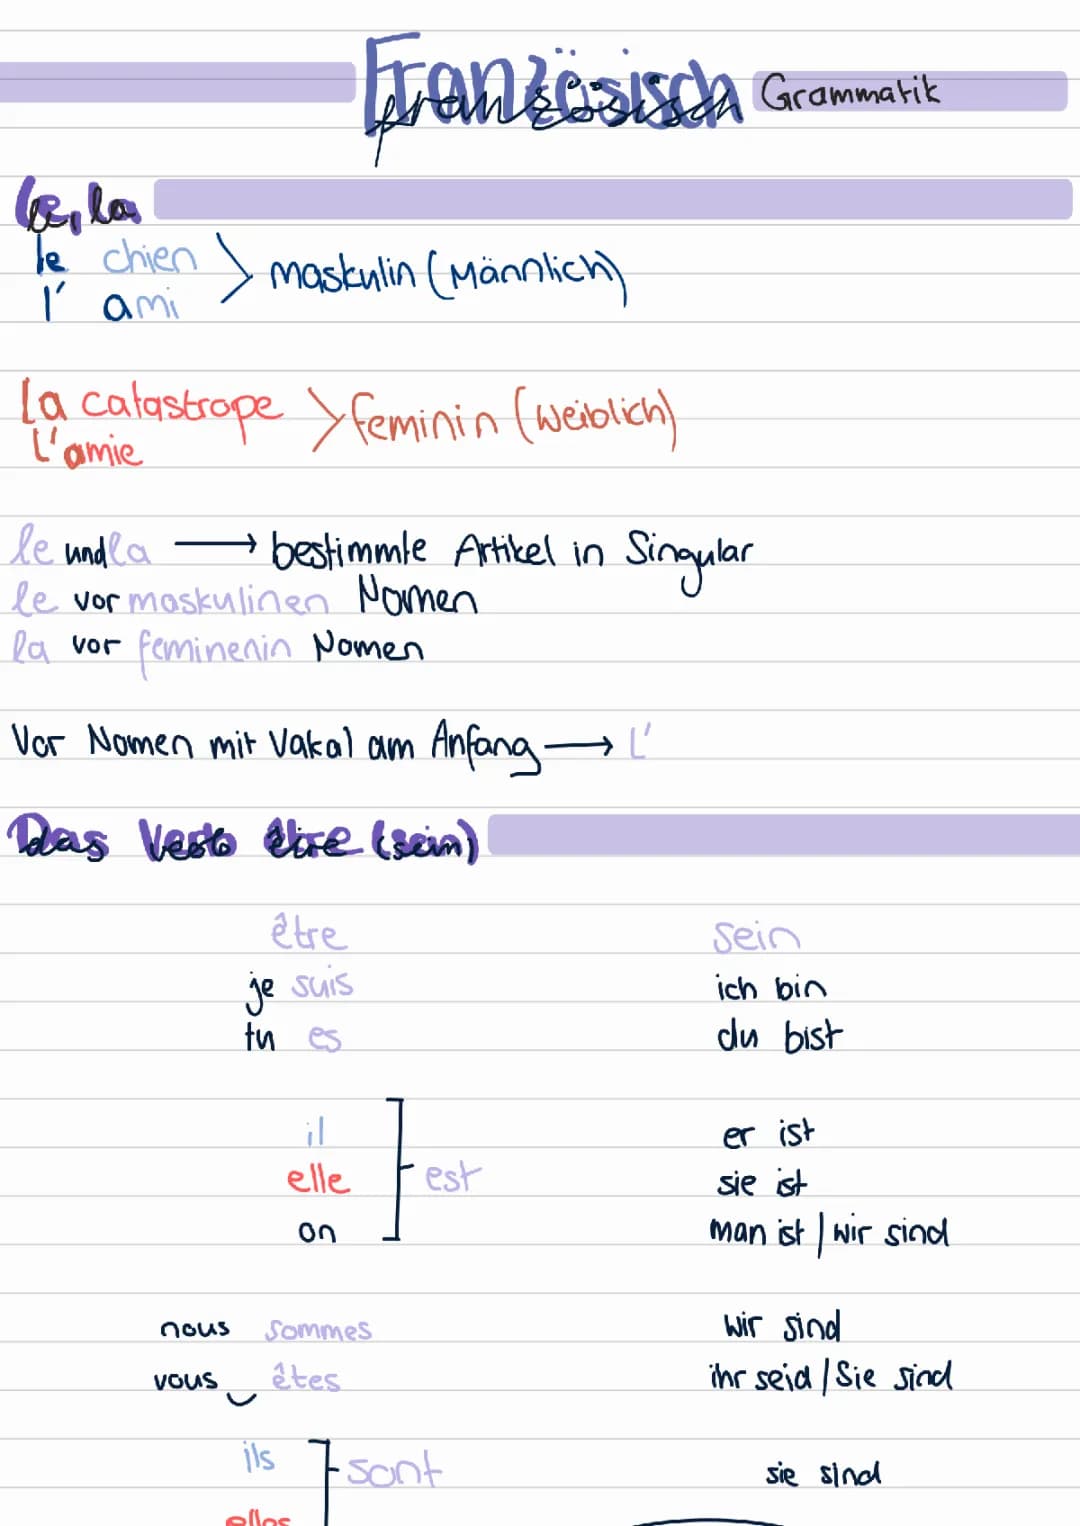 Französisch Grammatik
französisch
le, la
le chien
maskulin (Männlich)
l' ami
la catastrope
feminin (weiblich)
L'amie
le und la → bestimmte Artikel in Singular
le vor maskulinen Nomen
la vor feminenin Nomen
Vor Nomen mit Vakal am Anfang → L'
Das Verb être (sein)
être sein
je suis ich bin
tu es du bist
il er ist
elle est sie ist
on man ist | wir sind
nous sommes wir sind
vous êtes ihr seid / Sie sind
ils sont sie sind
elles